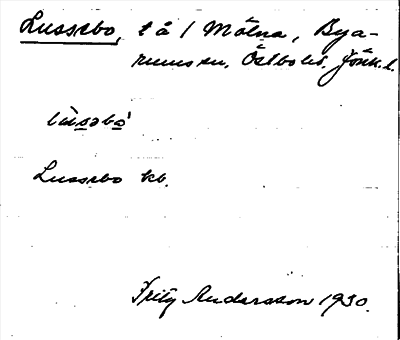 Lussebo, t å / Mölna, Bya-
rums sn, Östbo hd. Jönk. l.
lùsəbó
Lussebo kb.
Fritz Andersson 1930.